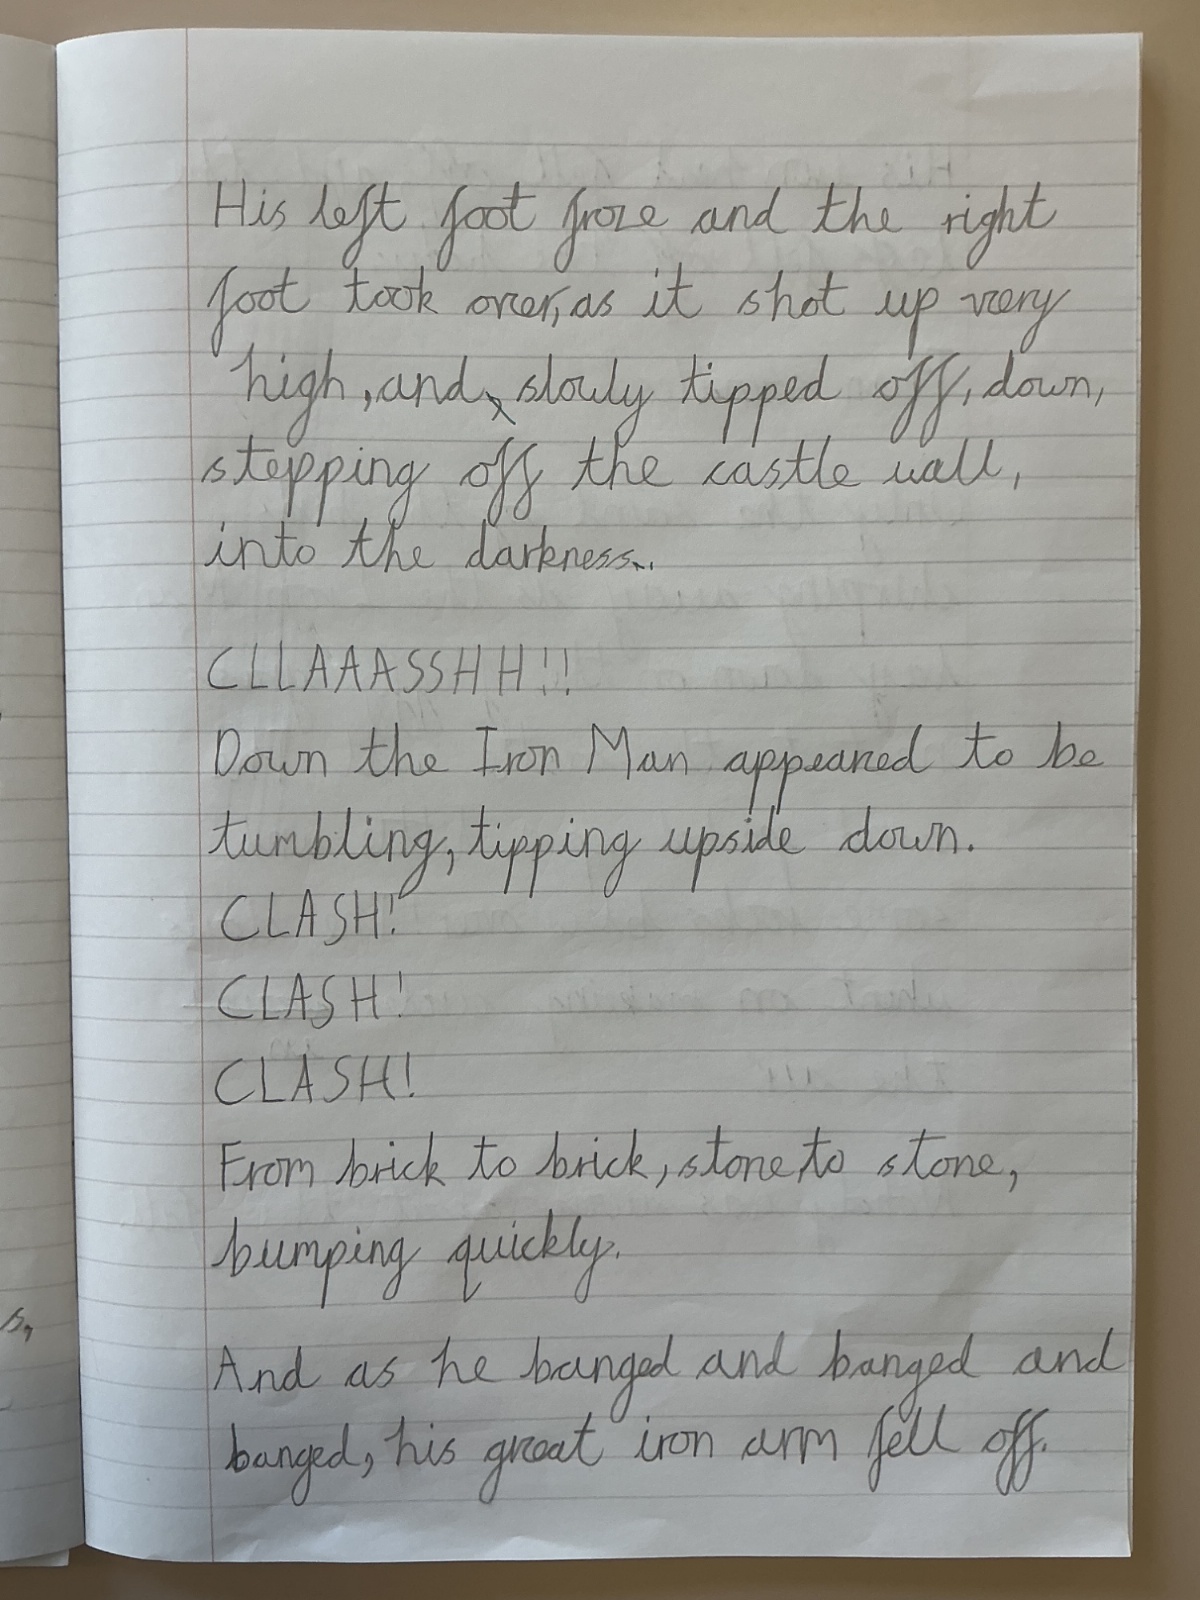 His left foot froze and the right
foot took over, as it shot up very
high, and, slowly tipped off, down,
stepping off the castle wall,
into the darkness...
CLLAAASSHH!!
Down the Iron Man appeared to be
tumbling, tipping upside down.
CLASH!
CLASH!
CLASH!
From brick to brick, stone to stone,
bumping quickly.
And as he banged and banged and
banged, his great iron arm fell off.